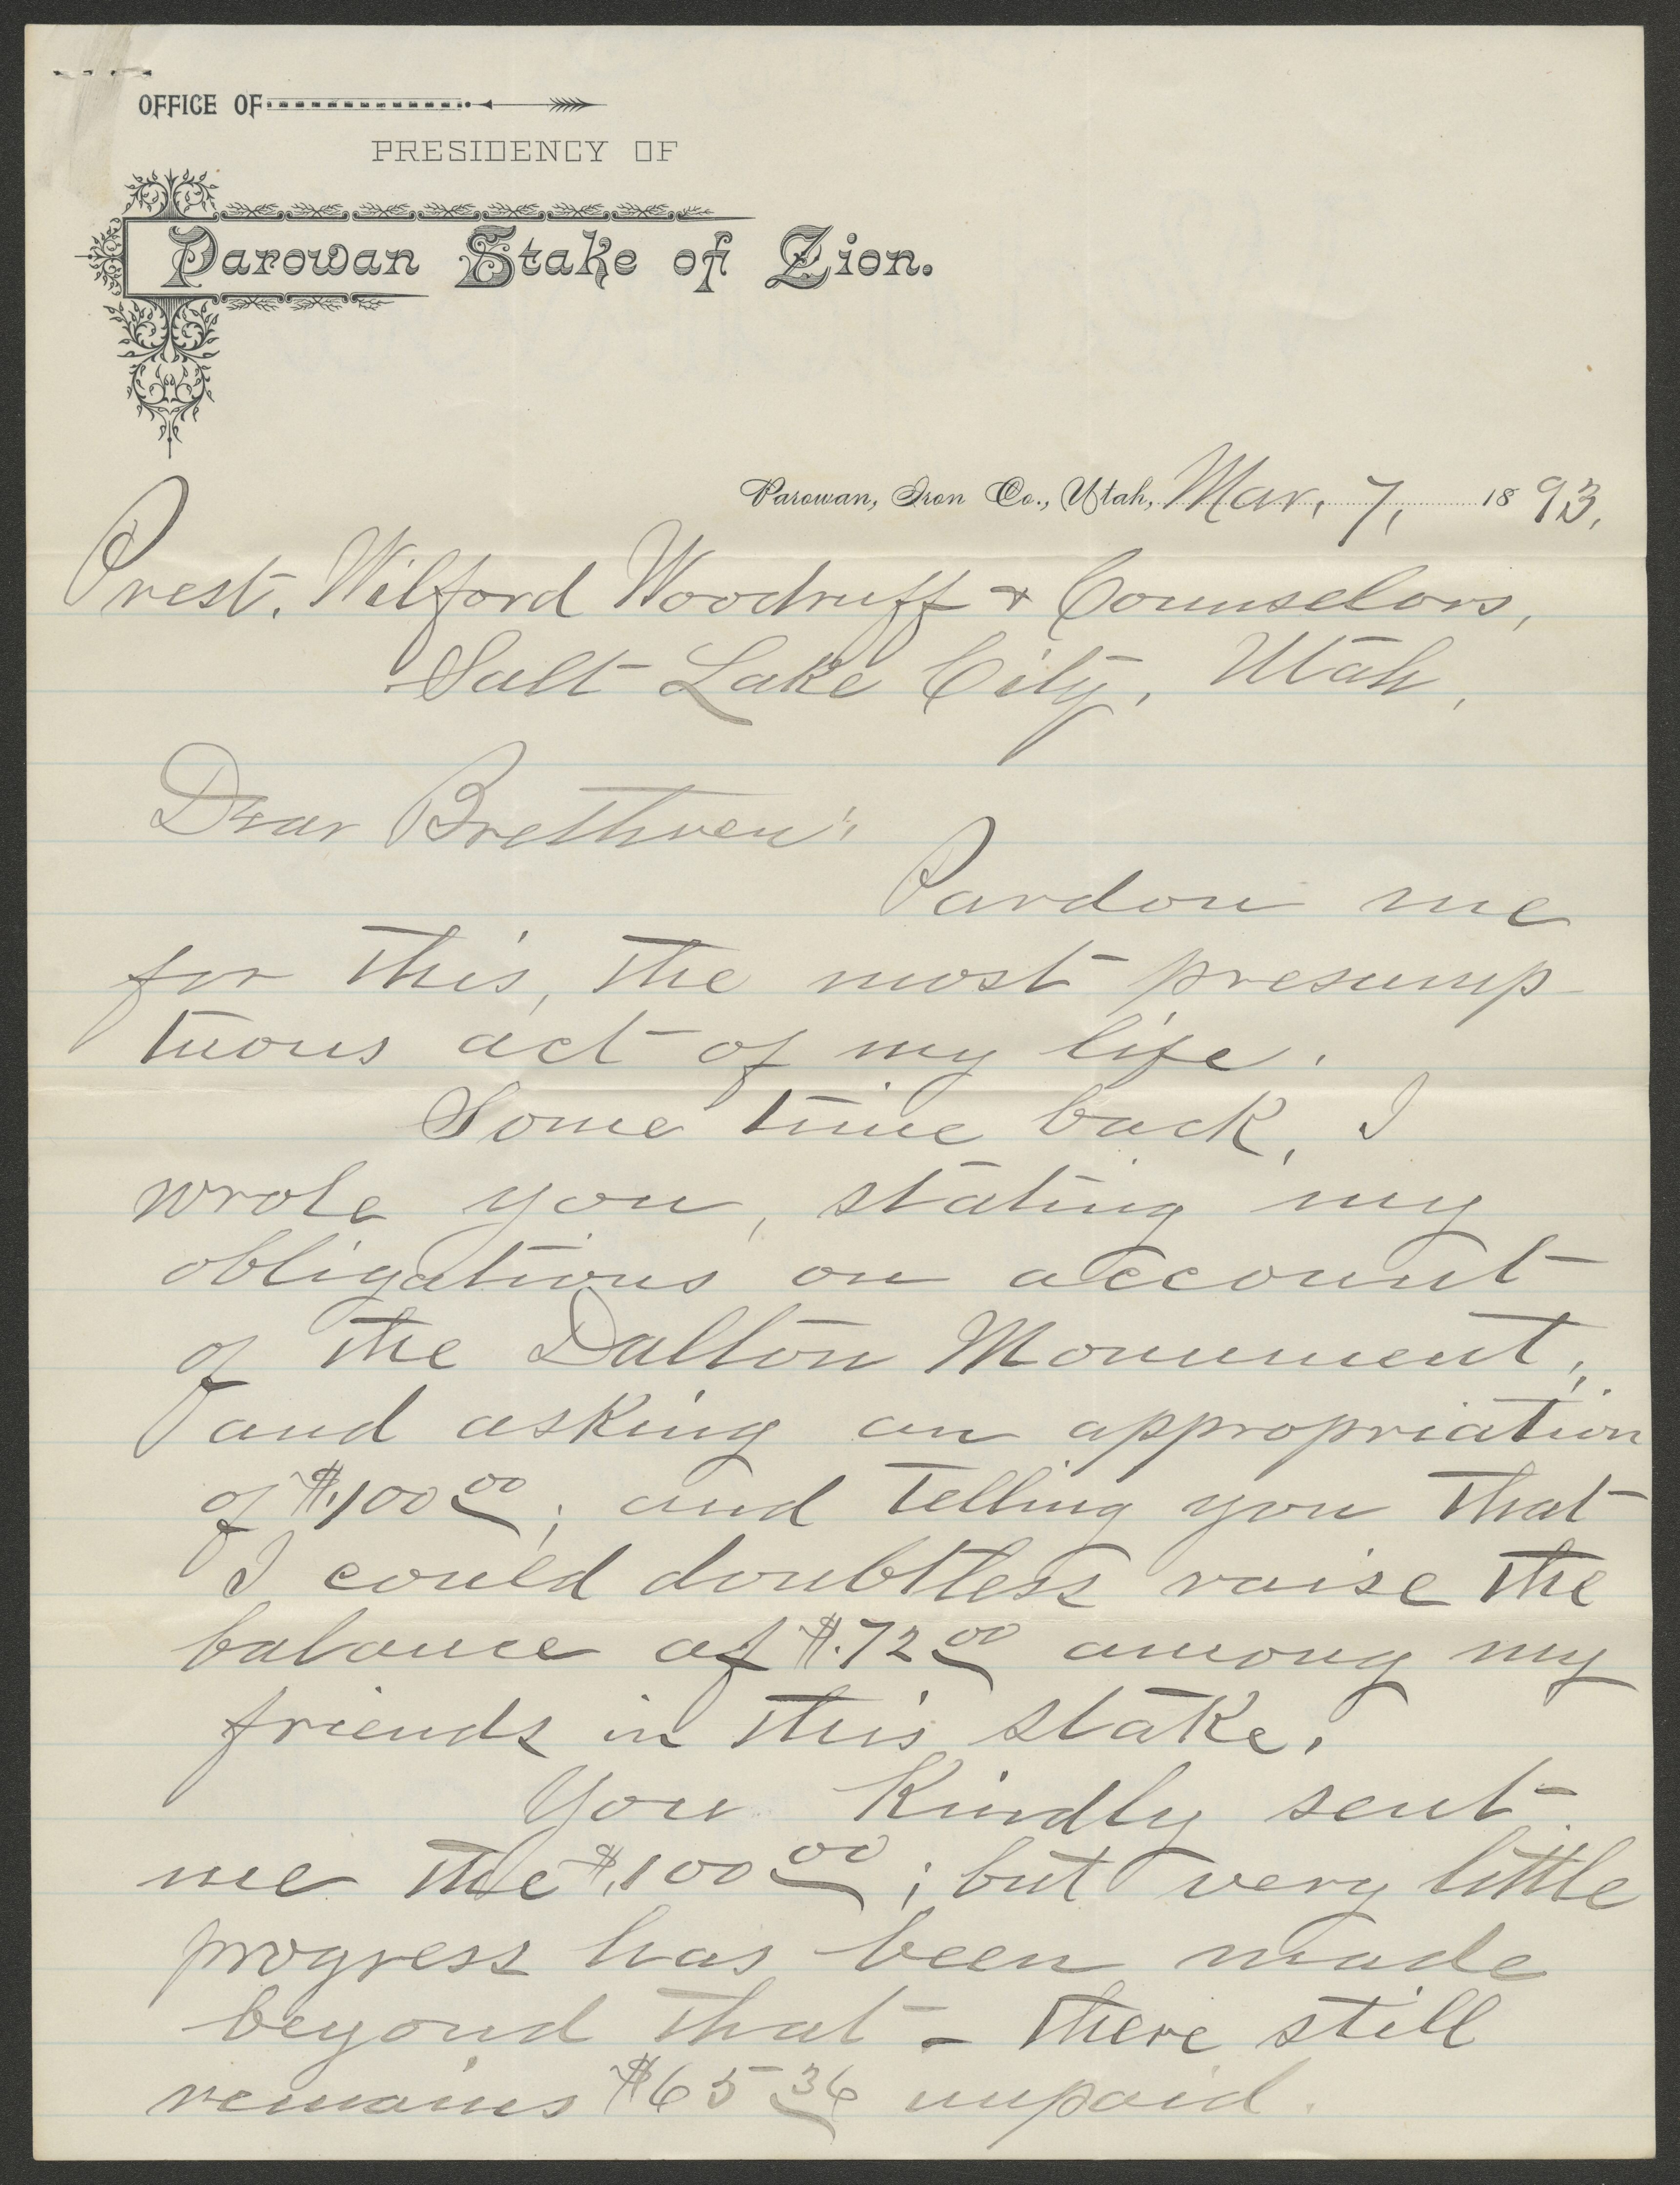 OFFICE OF
PRESIDENCY OF
Parowan Stake of Zion.
Parowan, Iron Co., Utah, Mar. 7, 1893.
Prest. Wilford Woodruff & Counselors,
Salt Lake City, Utah,
Dear Brethren:
Pardon me
for this, the most presump
tuous act of my life.
Some time back, I
wrote you, stating my
obligations on account
of the Dalton Monument,
and asking an appropriation
of $100.00; and telling you that
I could doubtless raise the
balance of $.72.00 among my
friends in this stake.
You kindly sent
me the $100.00; but very little
progress has been made
beyond that - there still
remains $65.36 unpaid.